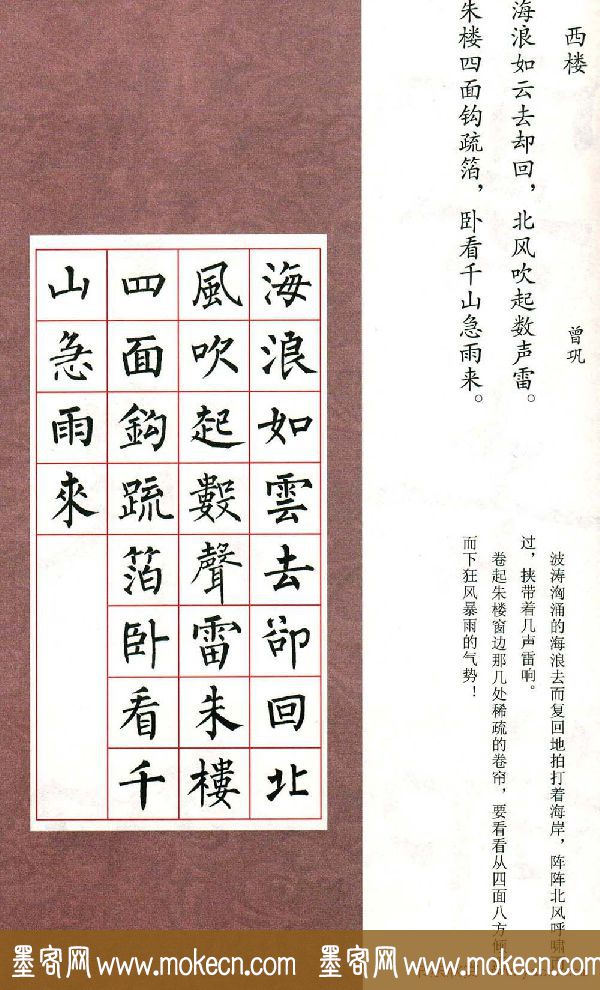 西楼
曾巩
海浪如云去却回，北风吹起数声雷。
朱楼四面钩疏箔，卧看千山急雨来。
波涛汹涌的海浪去而复回地拍打着海岸，阵阵北风呼啸而
过，挟带着几声雷响。
卷起朱楼窗边那几处稀疏的卷帘，要看看从四面八方倾
而下狂风暴雨的气势！
海浪如雲去卻回北
風吹起數聲雷朱樓
四面鈎疏箔卧看千
山急雨來
墨客网 www.mokecn.com 墨客网 www.mokecn.com